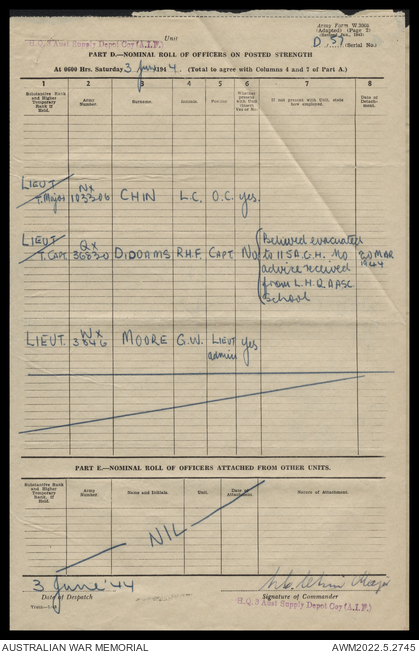 Army Form W 3008
(Adapted) (Page 2)
Unit
D 57 (Serial No.)
H.Q. 3 Aust Supply Depot Coy (A.I.F.)
PART D.—NOMINAL ROLL OF OFFICERS ON POSTED STRENGTH
At 0600 Hrs. Saturday 3 June 1944. (Total to agree with Columns 4 and 7 of Part A.)
1 2 3 4 5 6 7 8
Substantive Rank and Higher Temporary Rank if Held. Army Number. Surname. Initials. Posting Whether present with Unit Yes or No If not present with Unit, state how employed. Date of Detachment.
LIEUT T. Major NX 103306 CHIN L.C. O.C. yes.
LIEUT T. CAPT. QX 36830 DIDDAMS R.H.F. CAPT. No Believed evacuated to 115 A.G.H. No advice received from L.H.Q AASC School 20 MAR 1944
LIEUT. WX 3546 MOORE G.W. LIEUT admin yes
PART E.—NOMINAL ROLL OF OFFICERS ATTACHED FROM OTHER UNITS.
Substantive Rank and Higher Temporary Rank, if Held. Army Number. Name and Initials. Unit. Date of Attachment. Nature of Attachment.
NIL
3 June '44
Date of Despatch
Major
Signature of Commander
H.Q. 3 Aust Supply Depot Coy (A.I.F.)
AUSTRALIAN WAR MEMORIAL
AWM2022.5.2745